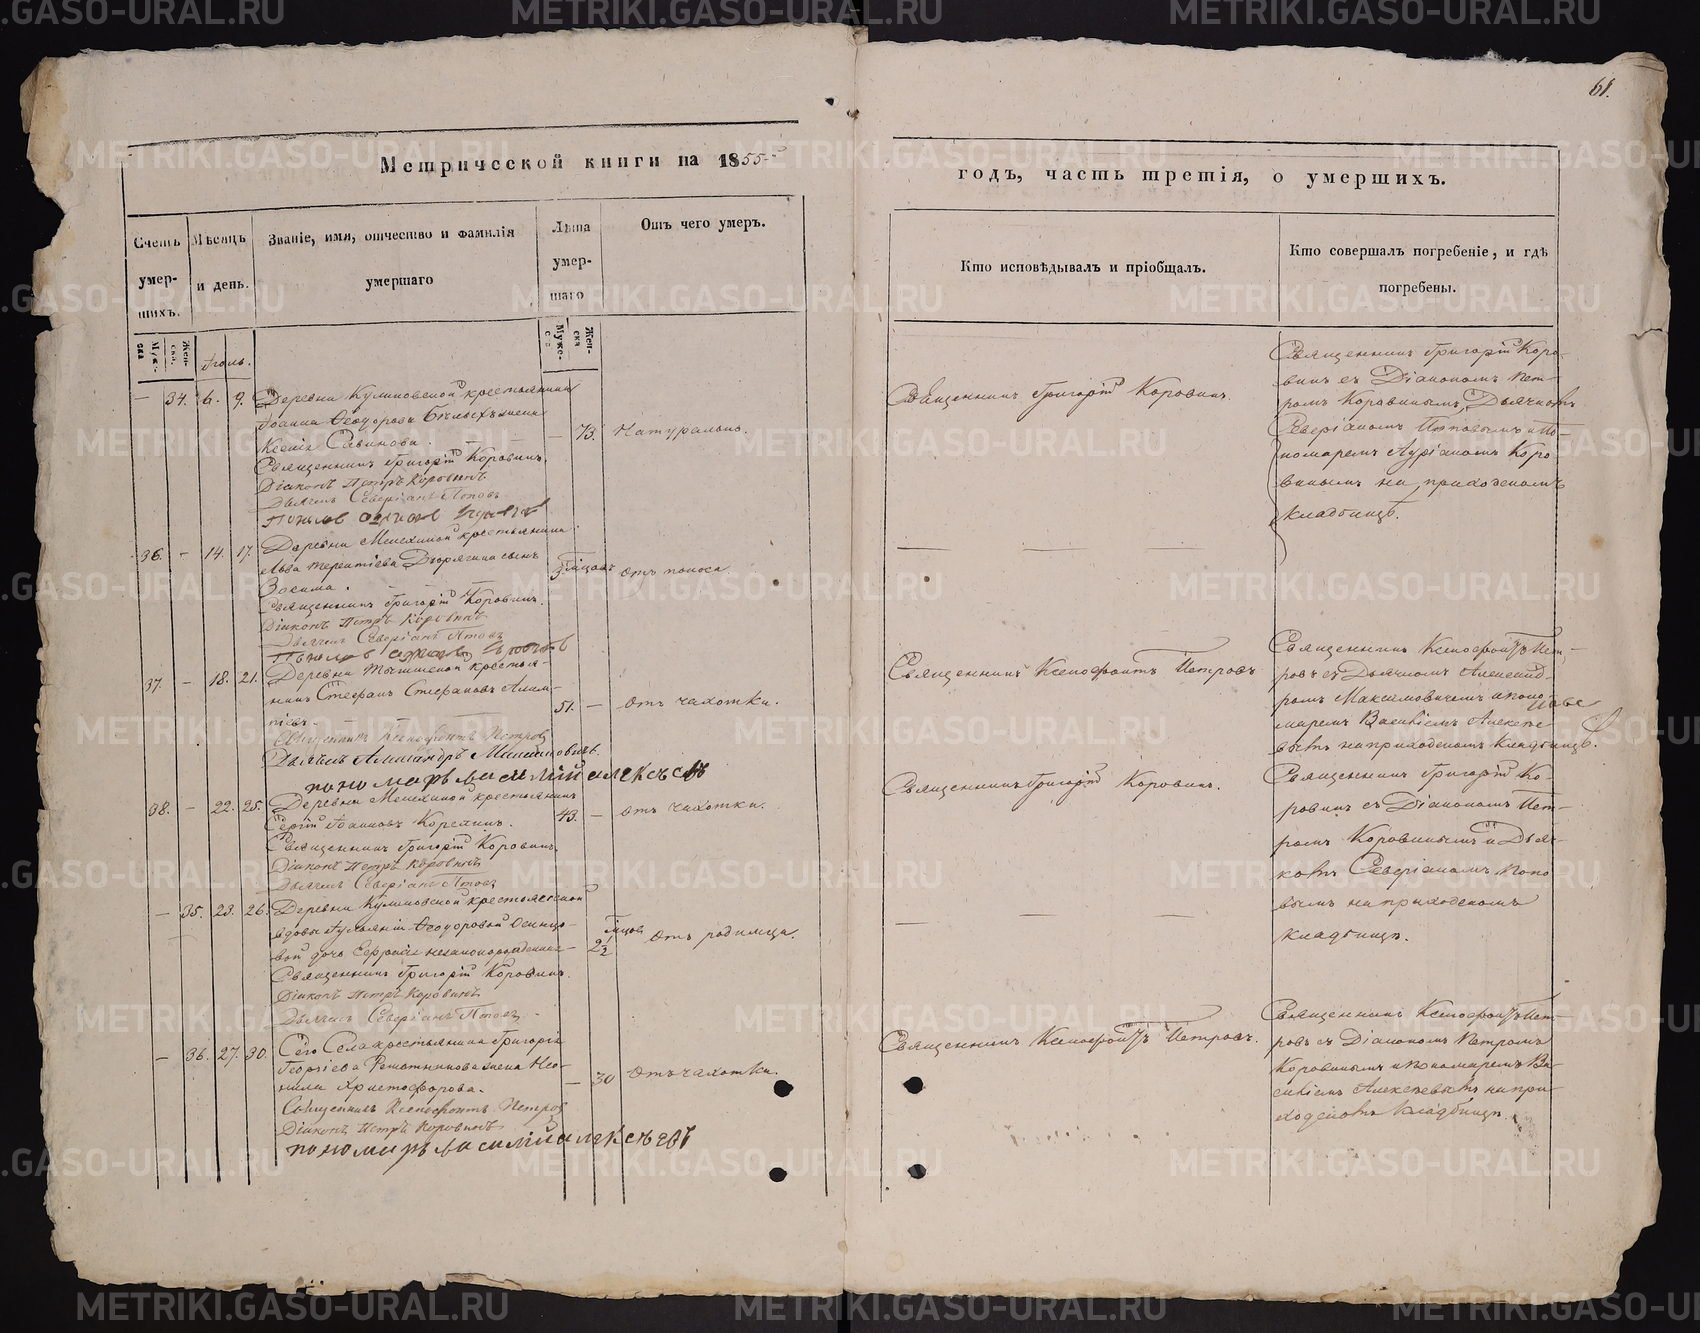 61.
Метрической книги на 1855
годъ, часть третія, о умершихъ.
Счетъ умер-шихъ.
Мѣсяцъ и день.
Званіе, имя, отчество и фамилія умершаго
Лѣта умер-шаго
Отъ чего умеръ.
Кто исповѣдывалъ и пріобщалъ.
Кто совершалъ погребеніе, и гдѣ погребены.
Муж-ска
Жен-ска.
Муже-ска
Жен-ска
Іюль.
— 34. 6. 9. Деревни Куликовской крестьянина
Іоанна Ѳеодорова Бѣлыхъ жена
Ксенія Савинова. — 73. Натурально.
Священникъ Григорій Коровинъ.
Діаконъ Петръ Коровинъ
Дьячекъ Северіанъ Поповъ
Священникъ Григорій Коровинъ.
Священникъ Григорій Коро-
винъ съ Діакономъ Пет-
ромъ Коровинымъ, Дьячкомъ
Северіаномъ Поповымъ и По-
номаремъ Коро-
винымъ на приходскомъ
кладбищѣ.
36. — 14. 17. Деревни крестьянина
Льва Терентіева сынъ
Зосима.
отъ поноса
Священникъ Григорій Коровинъ.
Діаконъ Петръ Коровинъ
Дьячекъ Северіанъ Поповъ
37. — 18. 21. Деревни крестья-
нинъ Стефанъ Стефановъ
51. — отъ чахотки.
Священникъ Ксенофонтъ Петровъ
Дьячекъ Александръ Максимовичъ.
пономарь василій алексѣевъ
Священникъ Ксенофонтъ Петровъ
Священникъ Ксенофонтъ Пет-
ровъ съ Дьячкомъ Александ-
ромъ Максимовичемъ и поно-
маремъ Василіемъ Алексѣе
вымъ на приходскомъ кладбищѣ.
38. — 22. 25. Деревни крестьянинъ
Сергій Іоанновъ Корелинъ.
43. — отъ чахотки.
Священникъ Григорій Коровинъ.
Діаконъ Петръ Коровинъ
Дьячекъ Северіанъ Поповъ
Священникъ Григорій Коровинъ.
Священникъ Григорій Ко-
ровинъ съ Діакономъ Пет-
ромъ Коровинымъ и Дьяч-
комъ Северіаномъ Попо
вымъ на приходскомъ
кладбищѣ.
— 35. 23. 26. Деревни Куликовской крестьянской
вдовы Ѳеодоровой
дочь незаконнорожденная
отъ родимца.
Священникъ Григорій Коровинъ.
Діаконъ Петръ Коровинъ
Дьячекъ Северіанъ Поповъ
— 36. 27. 30. Сего Села крестьянина Григорія
Георгіева Решетникова жена Нео-
нила Христофорова.
— 30 отъ чахотки.
Священникъ Ксенофонтъ Петровъ
Діаконъ Петръ Коровинъ
пономарь василій алексѣевъ
Священникъ Ксенофонтъ Петровъ.
Священникъ Ксенофонтъ Пет-
ровъ съ Діакономъ Петромъ
Коровинымъ и пономаремъ Ва-
силіемъ Алексѣевымъ на при-
ходскомъ кладбищѣ.
METRIKI.GASO-URAL.RU